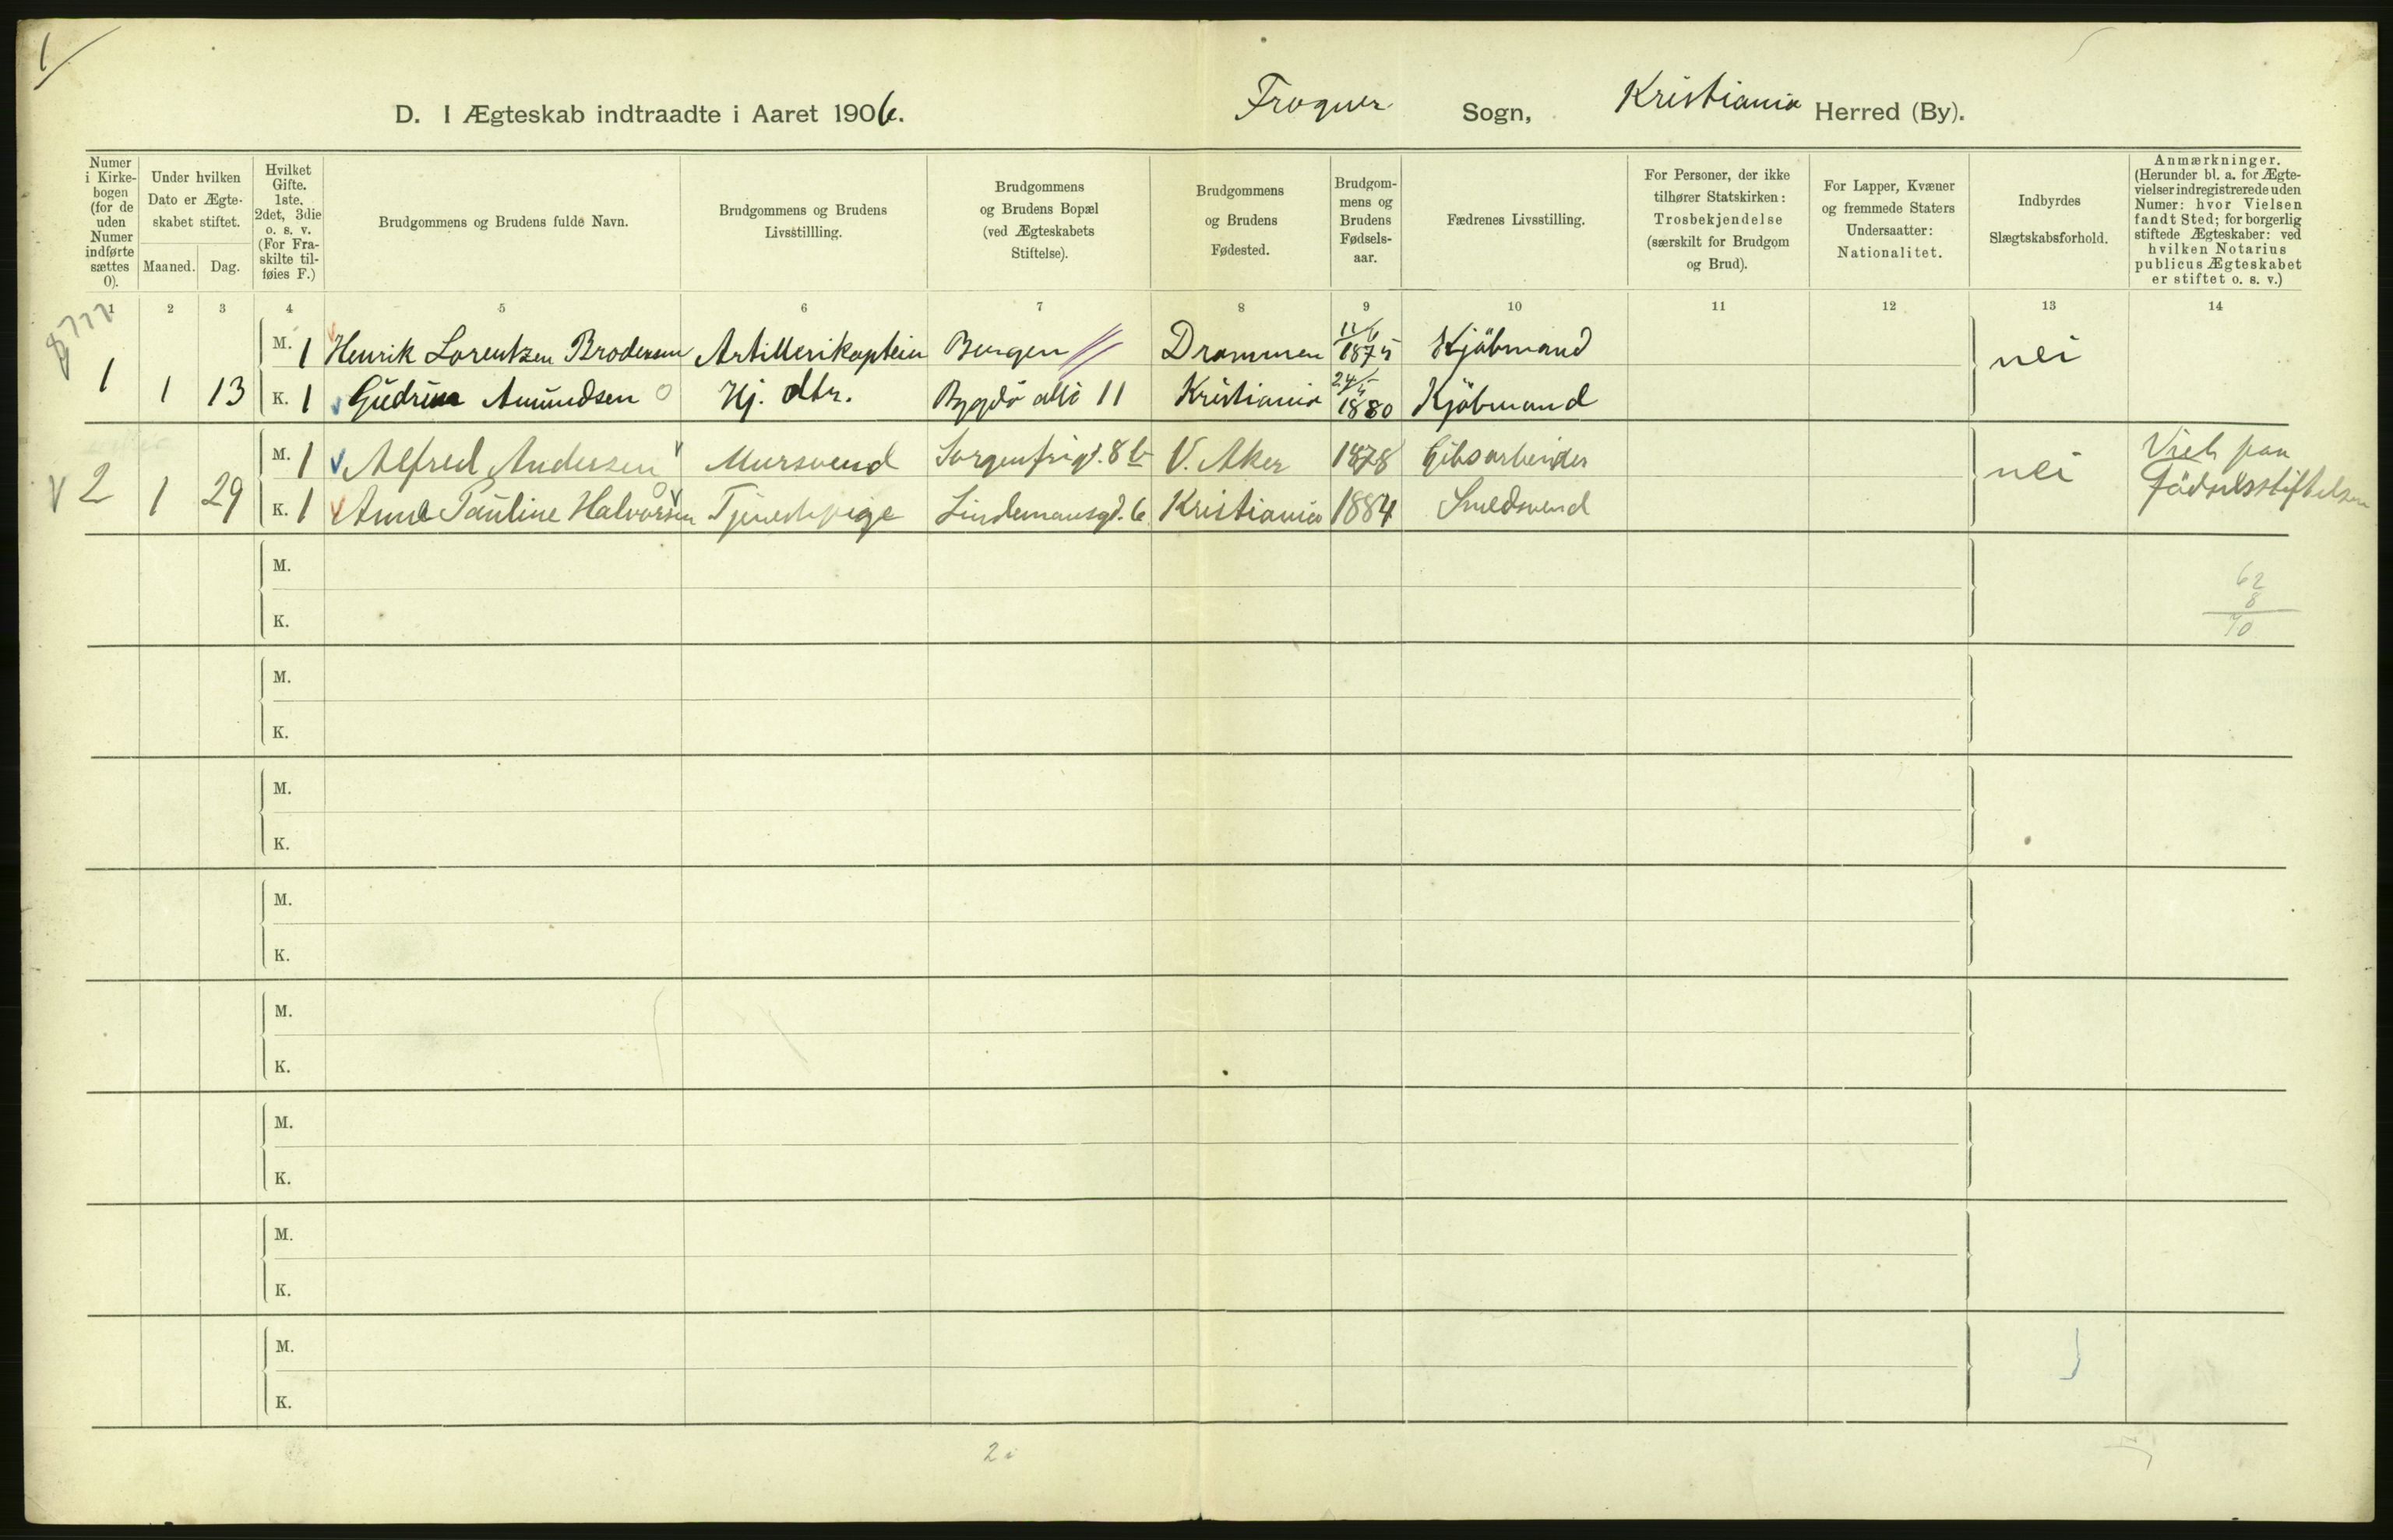 1
D. I Ægteskab indtraadte i Aaret 1906. Frogner Sogn, Kristiania Herred (By).
Numer i Kirkebogen (for de uden Numer indførte sættes 0).
Under hvilken Dato er Ægteskabet stiftet.
Maaned. Dag.
Hvilket Gifte. 1ste. 2det, 3die o. s. v. (For Fraskilte tilføies F.)
Brudgommens og Brudens fulde Navn.
Brudgommens og Brudens Livsstillling.
Brudgommens og Brudens Bopæl (ved Ægteskabets Stiftelse).
Brudgommens og Brudens Fødested.
Brudgommens og Brudens Fødselsaar.
Fædrenes Livsstilling.
For Personer, der ikke tilhører Statskirken: Trosbekjendelse (særskilt for Brudgom og Brud).
For Lapper, Kvæner og fremmede Staters Undersaatter: Nationalitet.
Indbyrdes Slægtskabsforhold.
Anmærkninger. (Herunder bl. a. for Ægtevielser indregistrerede uden Numer: hvor Vielsen fandt Sted; for borgerlig stiftede Ægteskaber: ved hvilken Notarius publicus Ægteskabet er stiftet o. s. v.)
1 2 3 4 5 6 7 8 9 10 11 12 13 14
M. 1 Henrik Lorentzen Brodersen Artillerikaptein Bergen Drammen 11/6 1875 Kjöbmand nei
1 1 13 K. 1 Gudrun Amundsen Kj. dtr. Bygdö allé 11 Kristiania 24/5 1880 Kjöbmand
M. 1 Alfred Andersen Mursvend Sorgenfrigd. 8 b V. Aker 1878 Gibsarbeider nei Viet paa
2 1 29 K. 1 Anna Pauline Halvorsen Tjenestepige Lindemansgd. 6 Kristiania 1884 Smedsvend Födselsstiftelsen
M.
62
8
70
K.
M.
K.
M.
K.
M.
K.
M.
K.
M.
K.
M.
K.
M.
K.